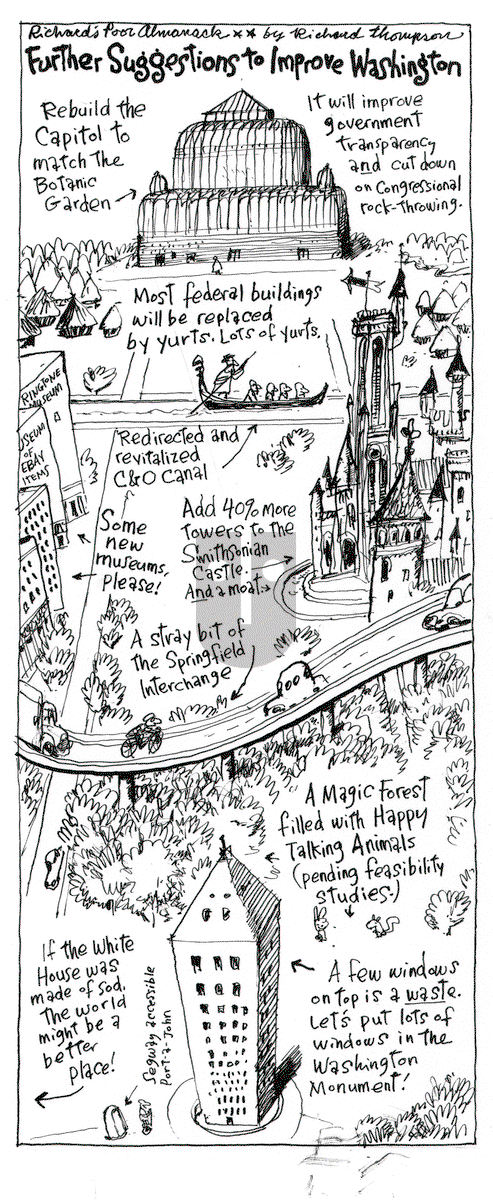 Richard's Poor Almanack ** by Richard Thompson
Further Suggestions to Improve Washington
Rebuild the
Capitol to
match the
Botanic
Garden
It will improve
government
transparency
and cut down
on Congressional
rock-throwing.
Most federal buildings
will be replaced
by yurts. Lots of yurts.
RINGTONE
MUSEUM
USEUM
OF
EBAY
ITEMS
Redirected and
revitalized
C&O Canal
Some
new
museums,
please!
Add 40% more
towers to the
Smithsonian
Castle.
And a moat.
A stray bit of
the Springfield
Interchange
A Magic Forest
filled with Happy
Talking Animals
(pending feasibility
studies.)
If the White
House was
made of sod,
the world
might be a
better
place!
Segway accessible
Port-a-John
A few windows
on top is a waste.
Let's put lots of
windows in the
Washington
Monument!